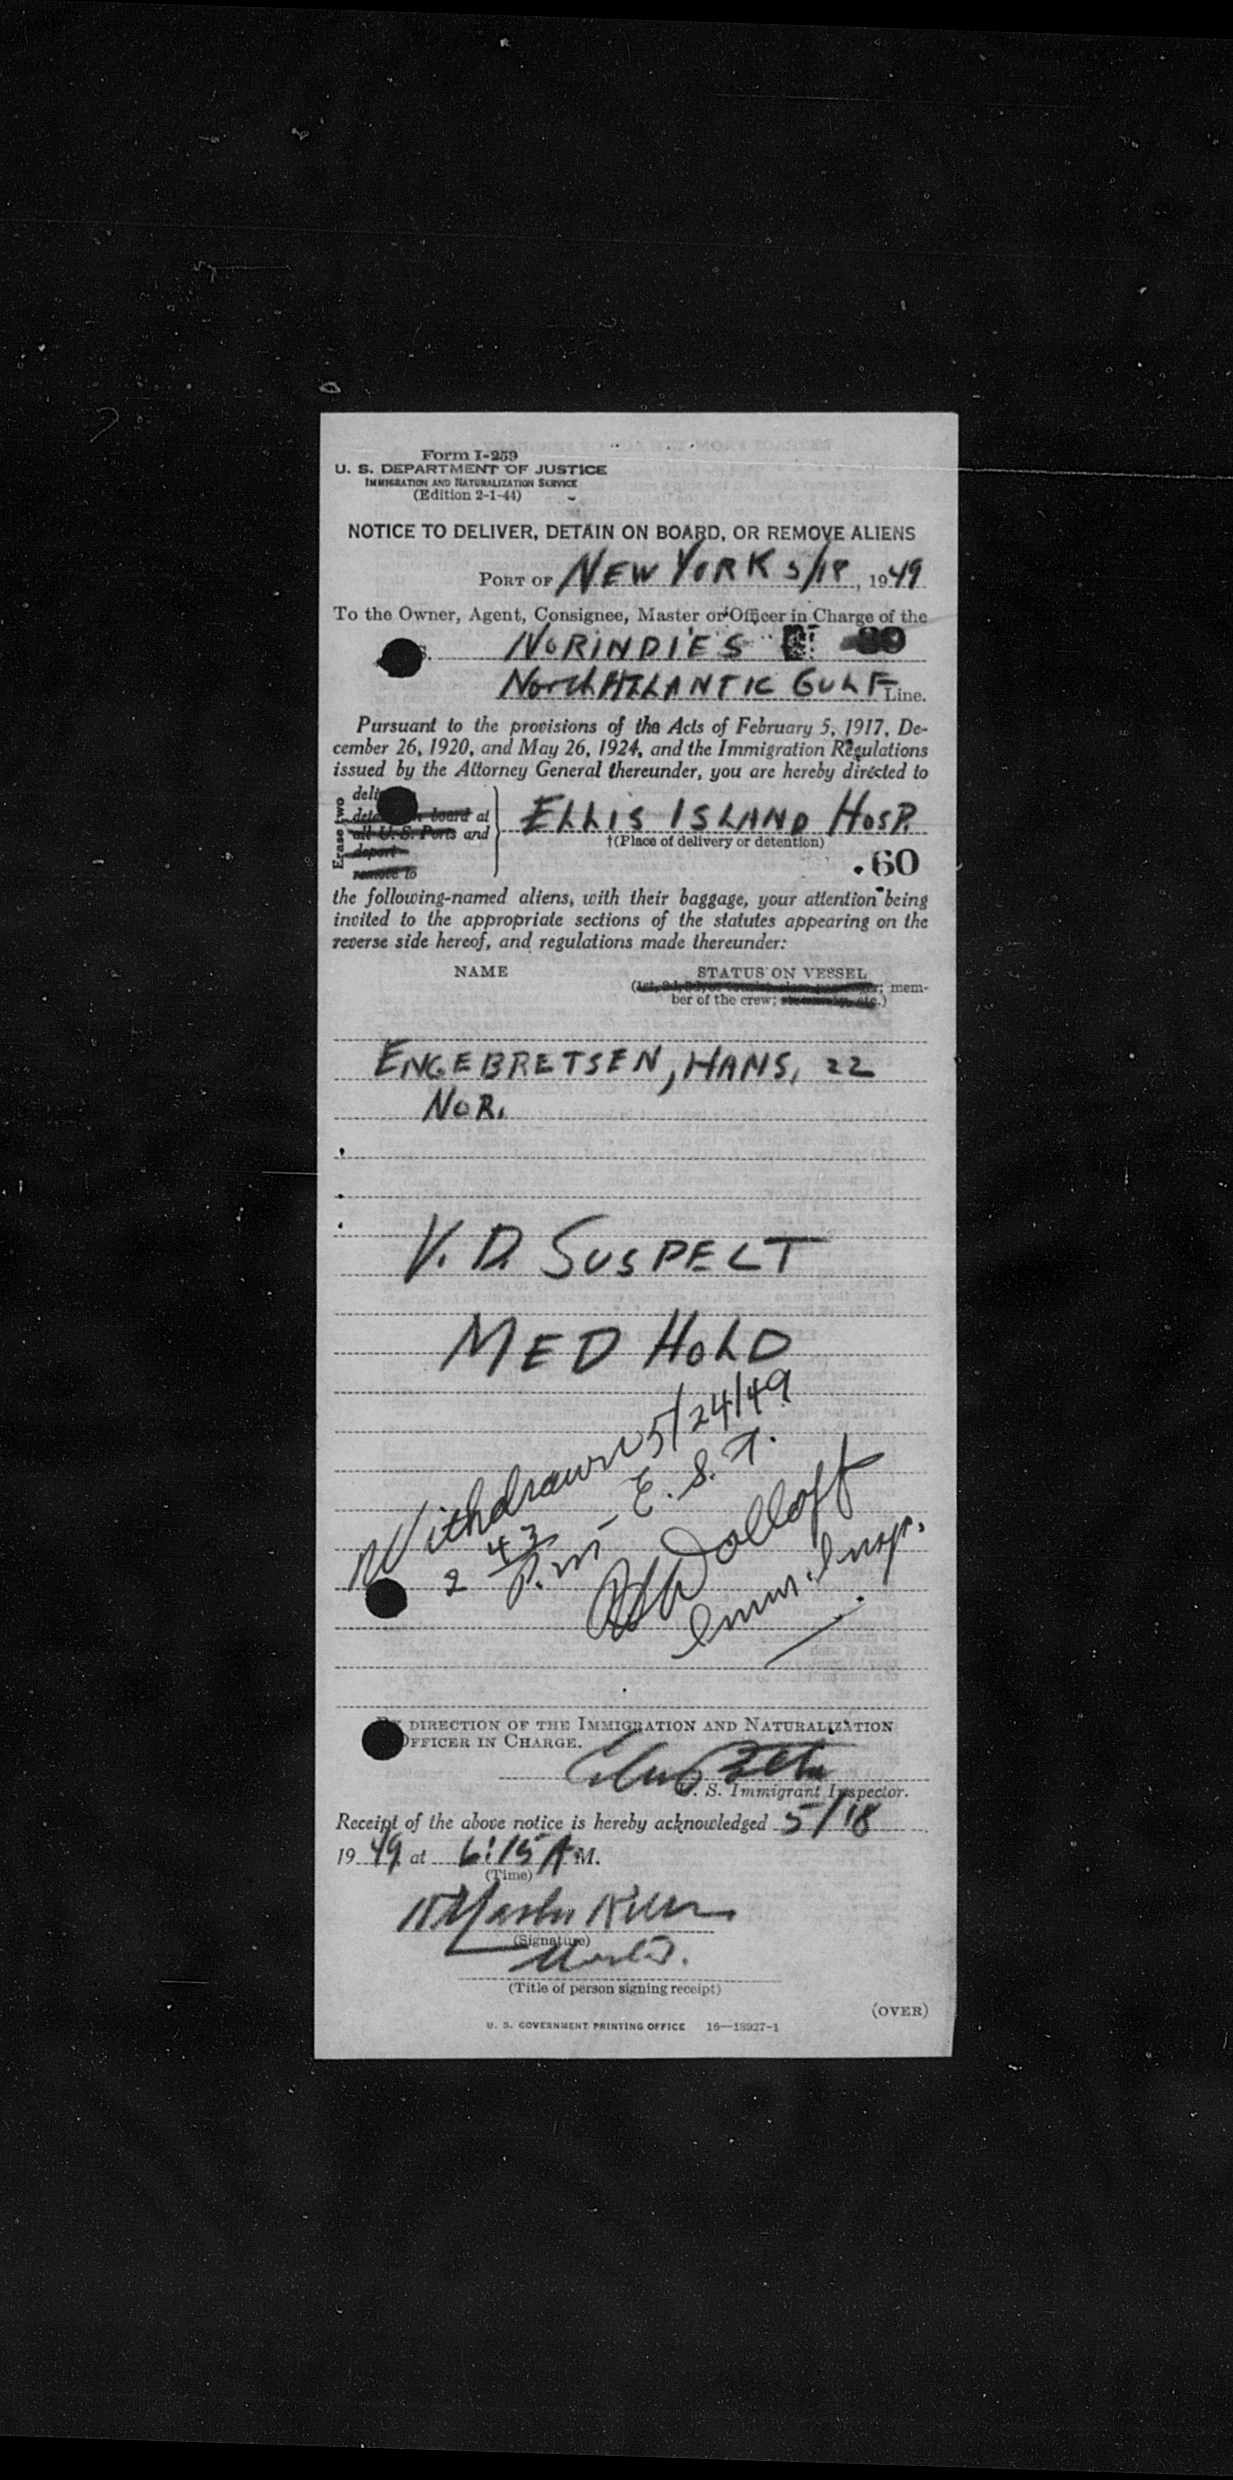 Form I-259
U. S. DEPARTMENT OF JUSTICE
IMMIGRATION AND NATURALIZATION SERVICE
(Edition 2-1-44)
NOTICE TO DELIVER, DETAIN ON BOARD, OR REMOVE ALIENS
PORT OF NEW YORK 5/18, 1949
To the Owner, Agent, Consignee, Master or Officer in Charge of the
S. NORINDIES
North ATLANTIC GULF Line.
Pursuant to the provisions of the Acts of February 5, 1917, De-
cember 26, 1920, and May 26, 1924, and the Immigration Regulations
issued by the Attorney General thereunder, you are hereby directed to
Erase two
board at
all U. S. Ports and
deport
remove to
ELLIS ISLAND HOSP.
†(Place of delivery or detention)
.60
the following-named aliens, with their baggage, your attention being
invited to the appropriate sections of the statutes appearing on the
reverse side hereof, and regulations made thereunder:
NAME STATUS ON VESSEL
mem-
ber of the crew; etc.)
ENGEBRETSEN, HANS, 22
NOR.
V. D. SUSPECT
MED HOLD
Withdrawn 5/24/49
2 43 P.m. - E. S. T.
Dolloff
Imm. Insp.
DIRECTION OF THE IMMIGRATION AND NATURALIZATION
OFFICER IN CHARGE.
S. Immigrant Inspector.
Receipt of the above notice is hereby acknowledged 5/18
1949 at 6:15 A M.
(Time)
(Signature)
Master.
(Title of person signing receipt)
(OVER)
U. S. GOVERNMENT PRINTING OFFICE 16—18927-1